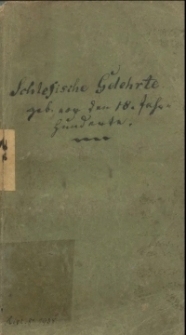 Schlesische Gelehrte
geb. vor dem 18. Jahr-
hunderte.